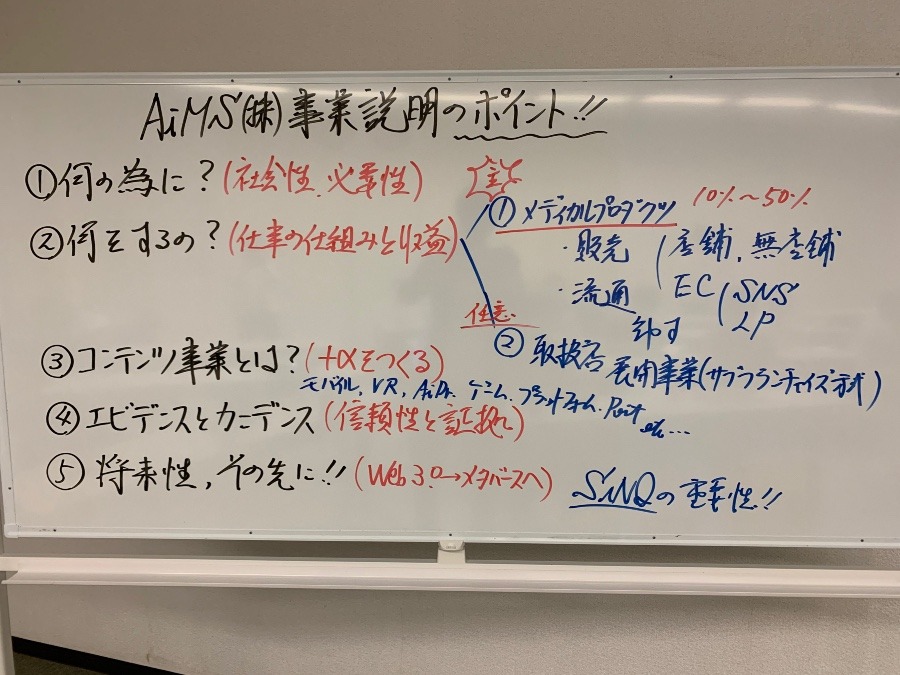 AiMS(株)事業説明のポイント!!
①何の為に?(社会性、必要性)
②何をするの?(仕事の仕組みと収益)
①メディカルプロダクツ 10%～50%
・販売 店舗、無店舗
・流通 EC SNS
LP
卸す
任意
②取扱店
展開事業(サブフランチャイズ方式)
③コンテンツ事業とは?(+αをつくる)
モバイル、VR、ゲーム、プラットフォーム、Point
etc…
④エビデンスとカニデンス(信頼性と証拠)
⑤将来性、その先に!!(Web3.0→メタバースへ)
SiNQの重要性!!